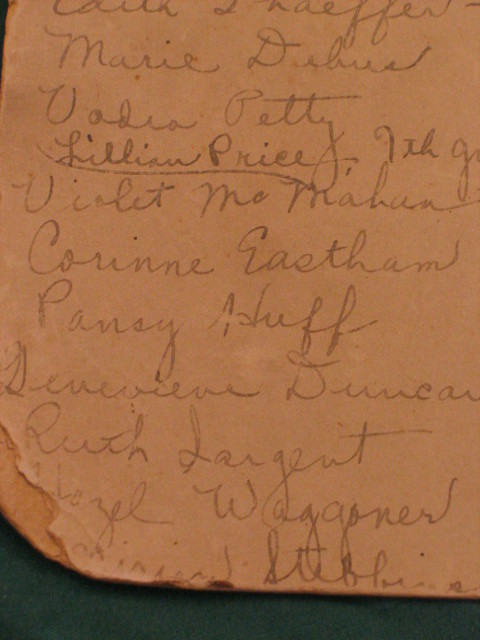 Edith Shaeffer
Marie Debus
Vadia Petty
Lillian Price, 7th gr
Violet McMahan
Corinne Eastham
Pansy Huff
Genevieve Duncan
Ruth Sargent
Hazel Waggoner
Stebbins